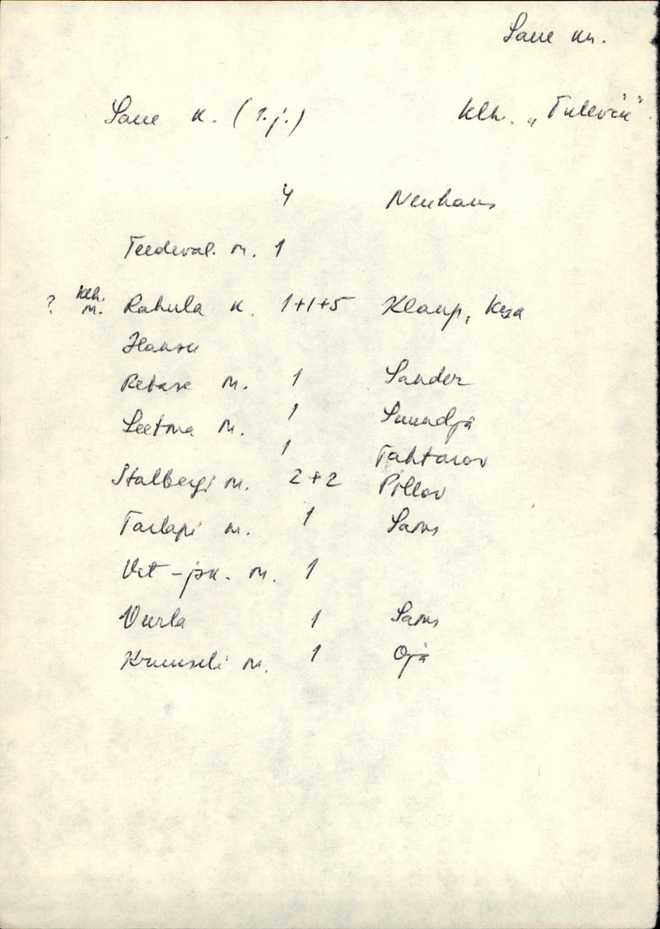 Saue kn.
Saue k. (r.j.) klh. „Tulevik"
4 Neuhaus
Teedeval. m. 1
? klh. m. Rahula k. 1+1+5 Klaup, Kesa
Hansu
Rebase m. 1 Sander
Seetma m. 1 Suundja
1 Tahtarov
Stalbergi m. 2+2 Pillov
Tarlapi m. 1 Sams
Vet-jsk. m. 1
Vurla 1 Sams
Kruuseli m. 1 Oja